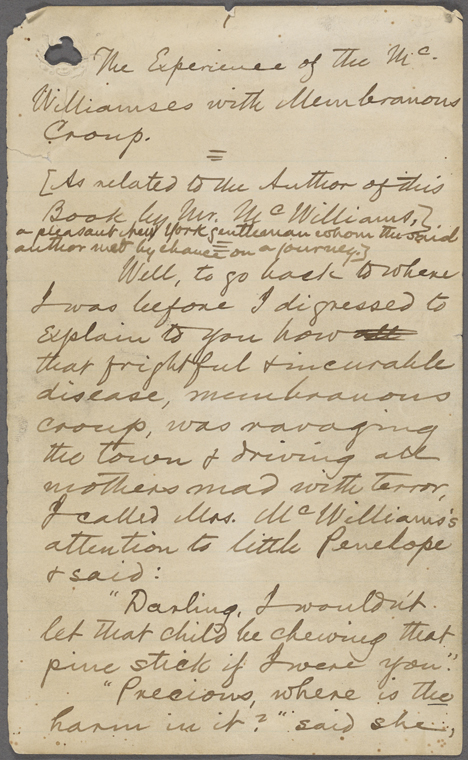 The Experience of the Mc.
Williamses with Membranous
Croup.
[As related to the Author of this
Book by Mr. McWilliams,]
a pleasant New York gentleman whom the said
author met by chance on a journey.]
Well, to go back to where
I was before I digressed to
explain to you how
that frightful & incurable
disease, membranous
croup, was ravaging
the town & driving all
mothers mad with terror,
I called Mrs. McWilliams's
attention to little Penelope
& said:
"Darling, I wouldn't
let that child be chewing that
pine stick if I were you."
"Precious, where is the
harm in it?" said she,